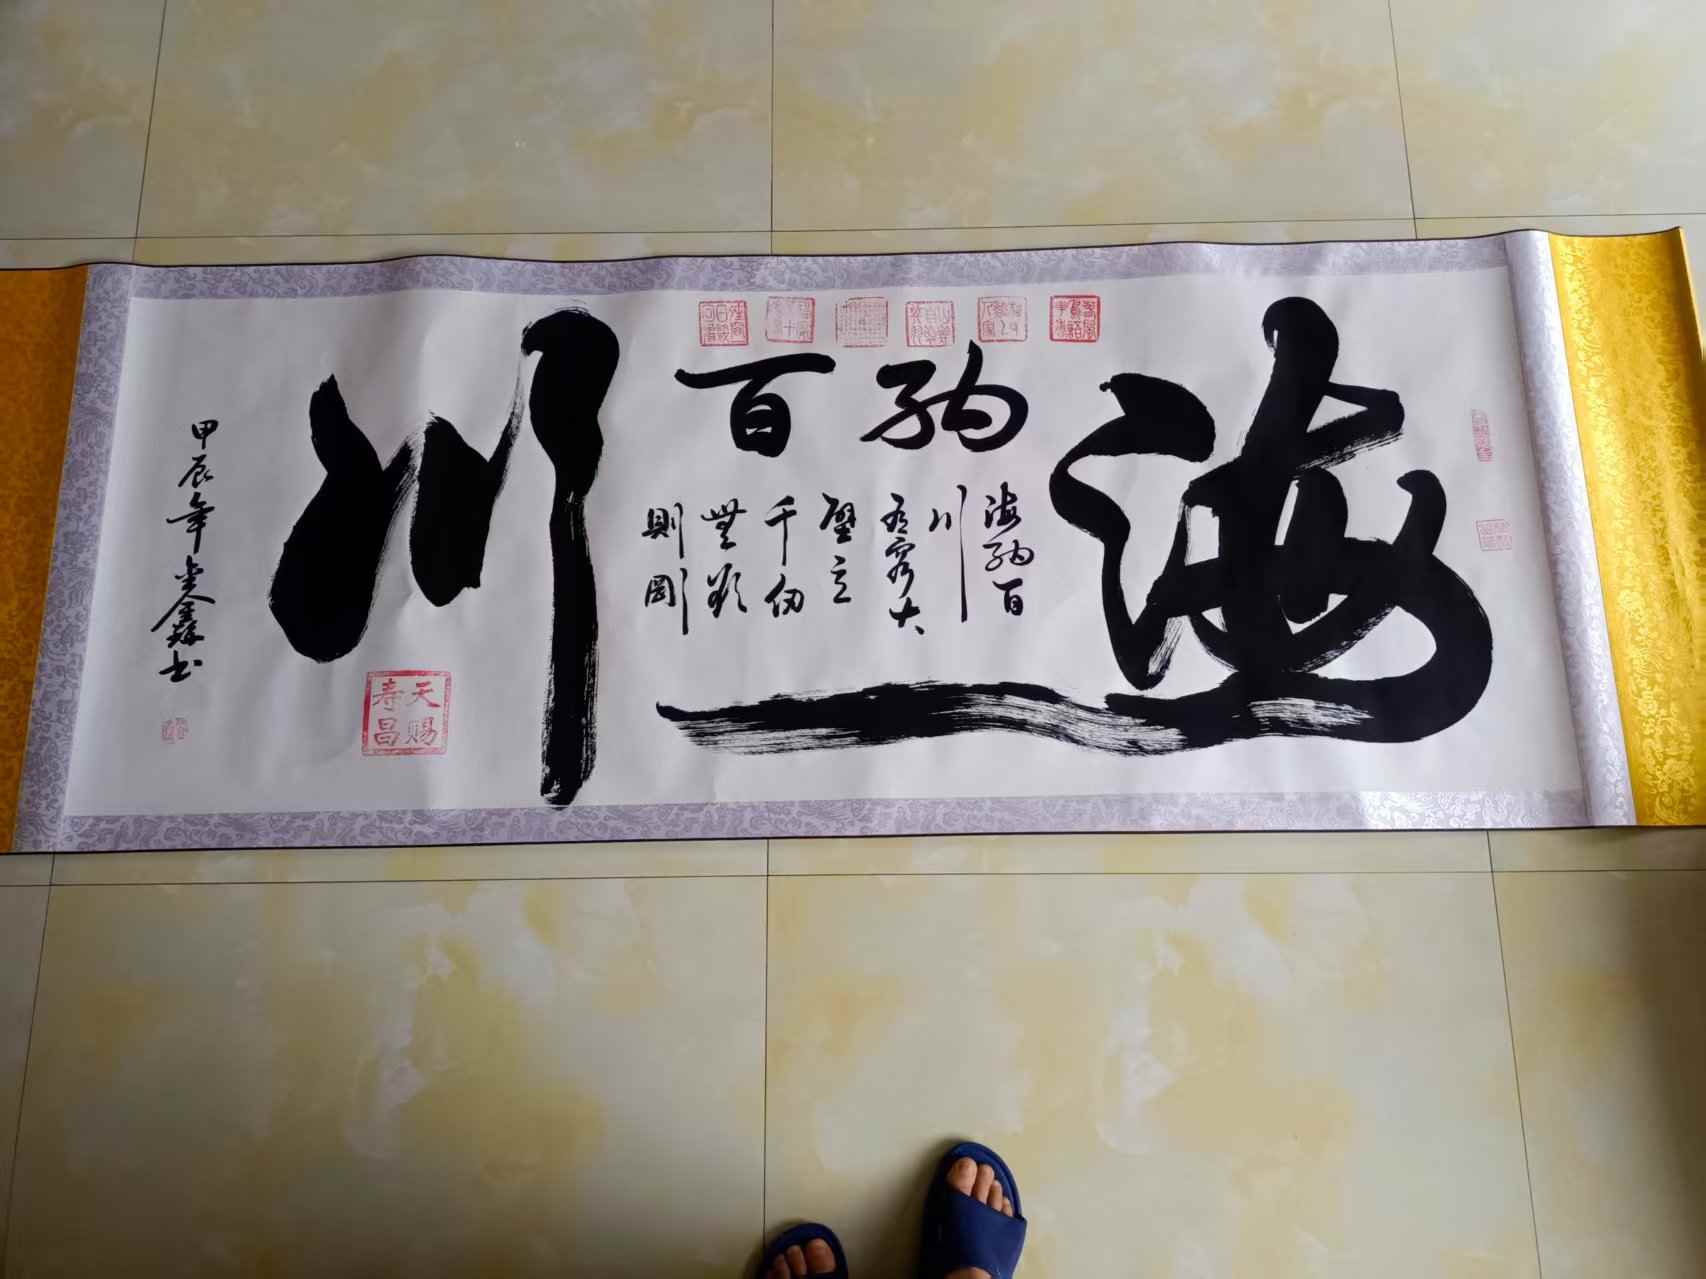 海纳百川
海纳百
川
有容大
壁立
千仞
無欲
則剛
甲辰年金鑫书
天赐
寿昌